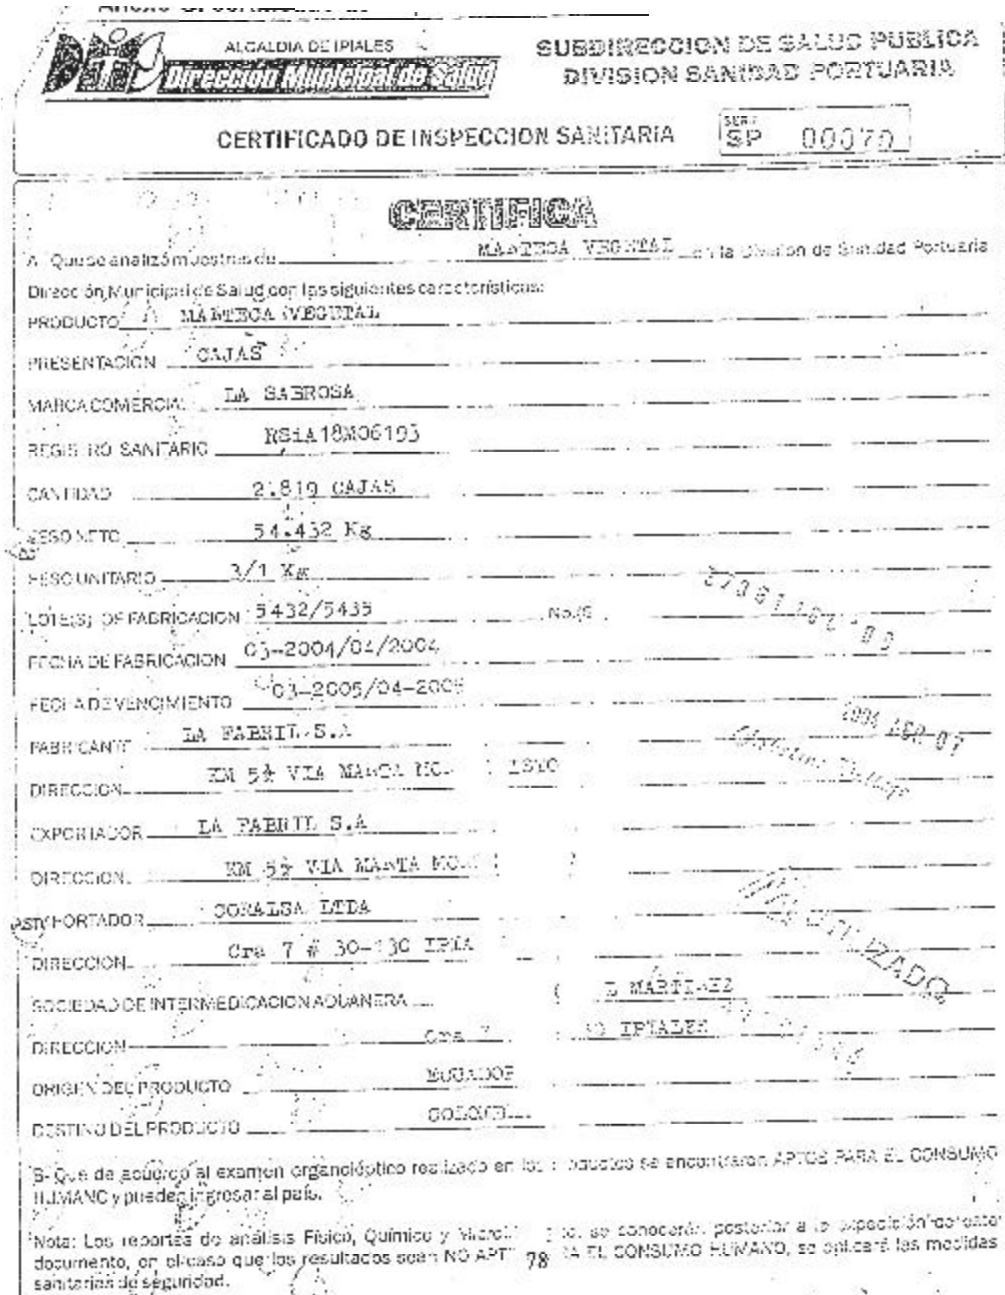 ALCALDIA DE IPIALES
Dirección Municipal de Salud
SUBDIRECCION DE SALUD PUBLICA
DIVISION SANIDAD PORTUARIA
CERTIFICADO DE INSPECCION SANITARIA
SERIE
SP 00070
CERTIFICA
A - Que se analizó muestras de MANTECA VEGETAL en la División de Sanidad Portuaria
Dirección Municipal de Salud con las siguientes características:
PRODUCTO MANTECA VEGETAL
PRESENTACION CAJAS
MARCA COMERCIAL LA SABROSA
REGISTRO SANITARIO RSiA18M06193
CANTIDAD 2.819 CAJAS
PESO NETO 54.432 Kg
PESO UNITARIO 3/1 Kg
LOTE(S) DE FABRICACION 5432/5435 No./S
FECHA DE FABRICACION 03-2004/04/2004
FECHA DE VENCIMIENTO 03-2005/04-2005
2004 ABR 07
FABRICANTE LA FABRIL S.A
DIRECCION KM 5½ VIA MANTA
EXPORTADOR LA FABRIL S.A
DIRECCION KM 5½ VIA MANTA
CORALSA LTDA
DIRECCION Cra 7 # 30-130
SOCIEDAD DE INTERMEDICACION ADUANERA
DIRECCION Cra IPIALES
ORIGEN DEL PRODUCTO ECUADOR
DESTINO DEL PRODUCTO
B- Que de acuerdo al examen organoléptico realizado en los productos se encontraron APTOS PARA EL CONSUMO
HUMANO y pueden ingresar al país.
Nota: Los reportes de análisis Físico, Químico y se conocerán posterior a la expedición de este
documento, en el caso que los resultados sean NO APT 78 EL CONSUMO HUMANO, se aplicará las medidas
sanitarias de seguridad.